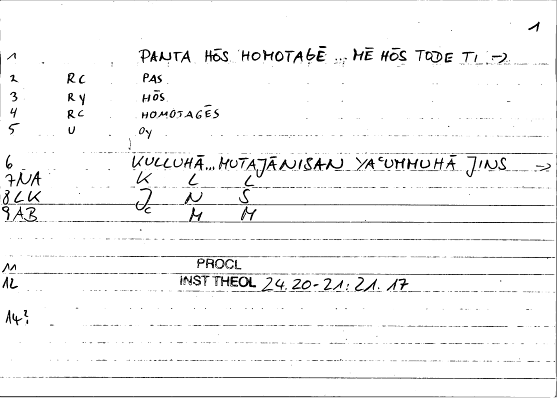 1
1 PANTA HŌS HOMOTAGĒ ... MĒ HŌS TODE TI →
2 RC PAS
3 RY HŌS
4 RC HOMOTAGĒS
5 U OY
6 KULLUHĀ... MUTAJĀNISAN YAᶜUMMUHĀ JINS →
7 NA K L L
8 LK J N S
9 AB C M M
11 PROCL
12 INST THEOL 24.20-21: 21.17
14?